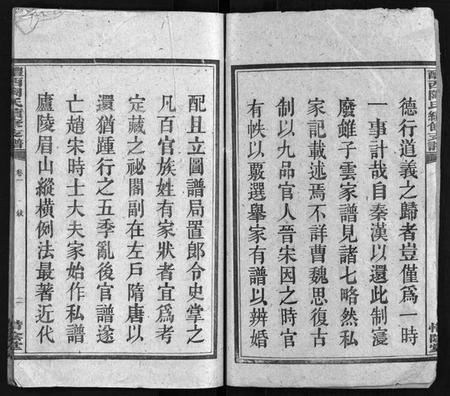 醴西陶氏續修支譜
德行道義之歸者豈僅為一時
一事計哉自秦漢以還此制寖
廢雖子雲家譜見諸七略然私
家記載述焉不詳曹魏思復古
制以九品官人晉宋因之時官
有帙以覈選舉家有譜以辨婚
惜陰堂
配且立圖譜局置郎令史掌之
凡百官族姓有家狀者宜為考
定藏之祕閣副在左戶隋唐以
還猶踵行之五季亂後官譜遂
亡趙宋時士大夫家始作私譜
廬陵眉山縱橫例法最著近代
醴西陶氏續修支譜
卷一
二
惜陰堂